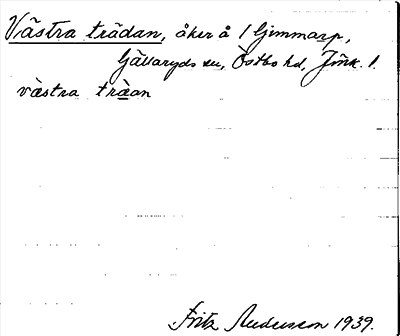 Västra trädan, åker å 1 Gimmarp,
Gällaryds sn, Östbo hd, Jönk. l.
västra träan
Fritz Anderson 1939.